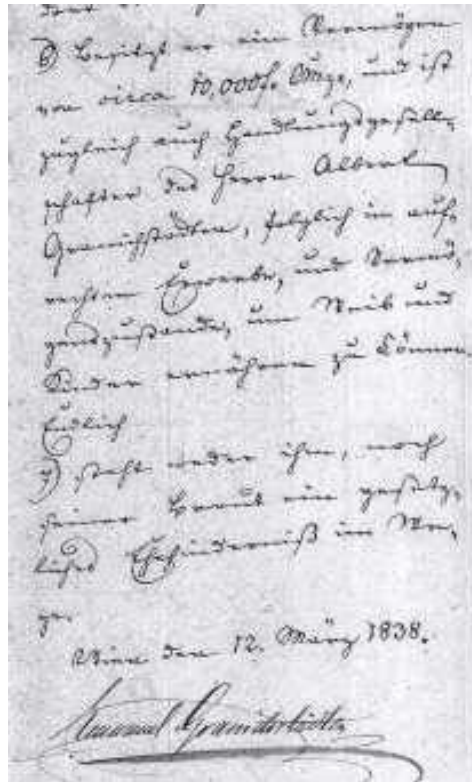 6) Besitzt er ein Vermögen
von circa 10,000 f. CMze, und ist
zugleich auch Handlungsgesell-
schafter des Herrn Albert
Granichstädten, folglich im auf-
rechten Erwerbe, und Vermö-
genszustande, um Weib und
Kinder ernähren zu können
Endlich
7) steht weder ihm, noch
seiner Braut ein gesetz-
liches Ehehinderniß im We-
ge.
Wien den 12. März 1838.
Emanuel Granichstädten